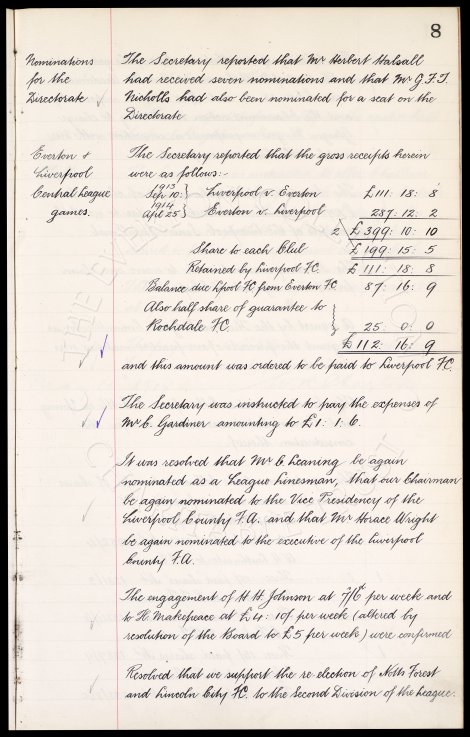 8
Nominations
for the
Directorate
The Secretary reported that Mr Herbert Halsall
had received seven nominations and that Mr G.F.T.
Nicholls had also been nominated for a seat on the
Directorate
Everton &
Liverpool
Central League
games.
The Secretary reported that the gross receipts herein
were as follows:-
1913
Sep 10: } Liverpool v. Everton £111: 18: 8
1914
Apl 25 } Everton v. Liverpool 287: 12: 2
2 £399: 10: 10
Share to each Club £199: 15: 5
Retained by Liverpool FC. £111: 18: 8
Balance due Lpool FC from Everton FC 87: 16: 9
Also half share of guarantee to
Rochdale FC. } 25: 0: 0
£112: 16: 9
and this amount was ordered to be paid to Liverpool FC.
The Secretary was instructed to pay the expenses of
Mr C. Gardiner amounting to £1: 1: 6.
It was resolved that Mr C Leaning be again
nominated as a League Linesman, that our Chairman
be again nominated to the Vice Presidency of the
Liverpool County F.A. and that Mr Horace Wright
be again nominated to the executive of the Liverpool
County F.A.
The engagement of H H Johnson at 7/6 per week and
to H. Makepeace at £4: 10/ per week (altered by
resolution of the Board to £5 per week) were confirmed
Resolved that we support the re election of Notts Forest
and Lincoln City FC. to the Second Division of the League.